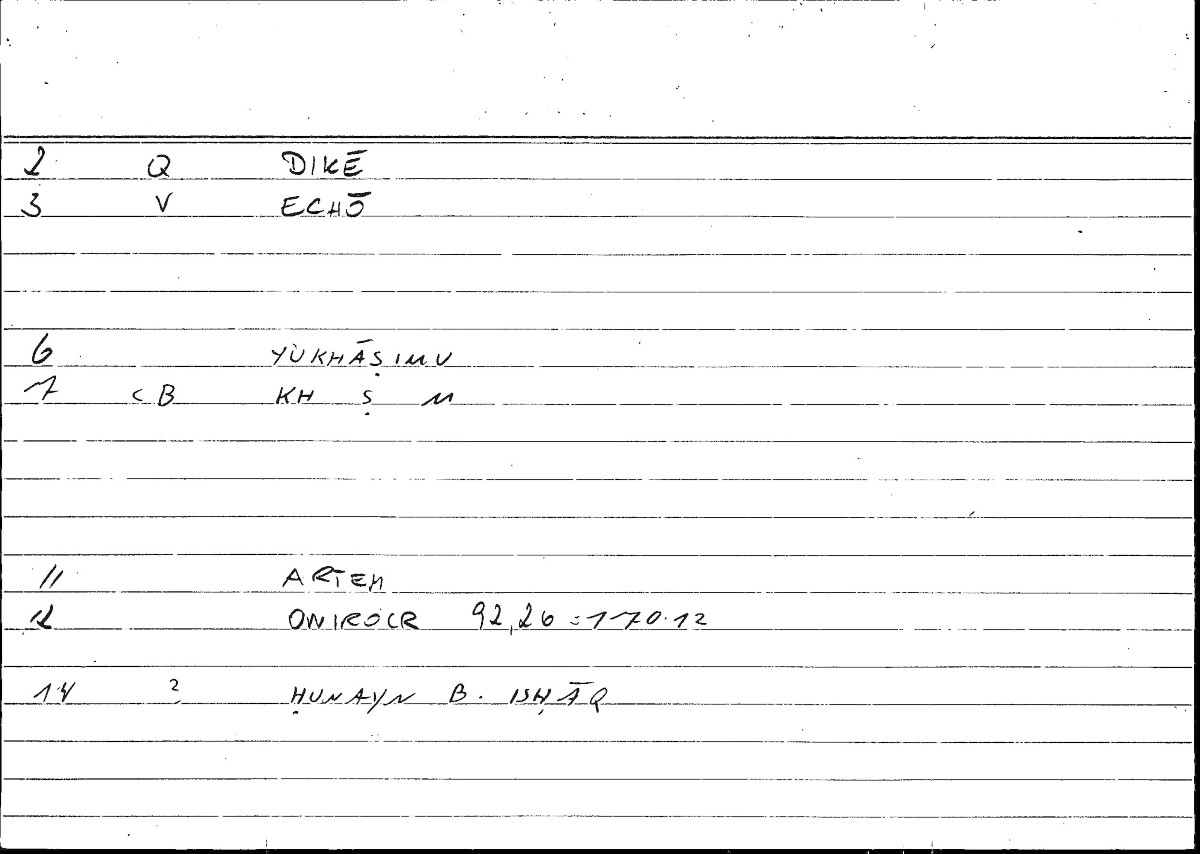 2 Q DIKĒ
3 V ECHŌ
6 YUKHĀṢIMU
7 <B KH Ṣ M
11 ARTEM
12 ONIROCR 92,26 = 170.12
14 2 ḤUNAYN B. ISḤĀQ